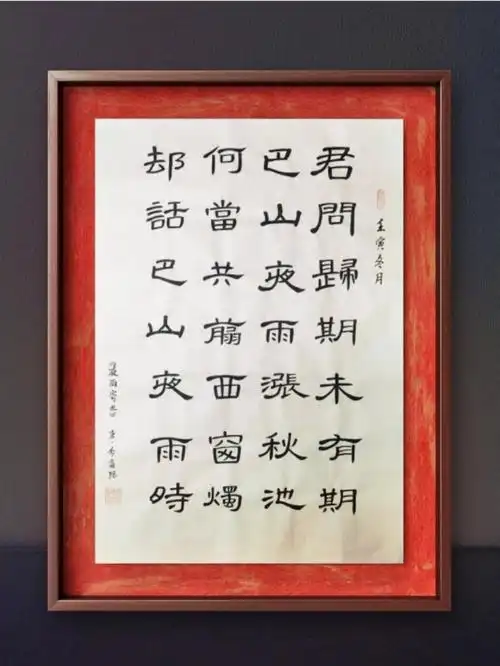 壬寅冬月
君問歸期未有期
巴山夜雨漲秋池
何當共翦西窗燭
却話巴山夜雨時
夜雨寄北 唐·李商隱